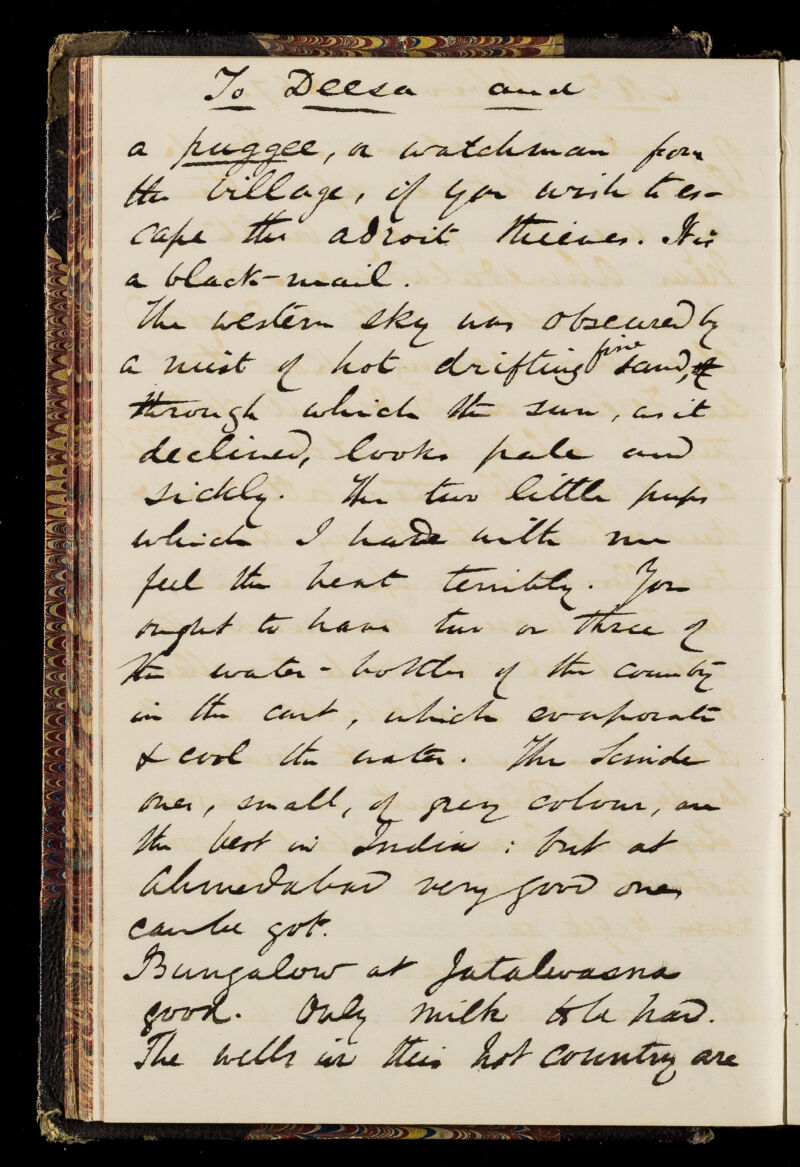 To Deesa and
a puggee, or watchman from
the village, if you wish to es-
cape the adroit thieves. It is
a black-mail.
The western sky was obscured by
a mist of hot drifting fine sand,
through which the sun, as it
declined, looks pale and
sickly. The two little pups
which I have with me
feel the heat terribly. You
ought to have two or three of
the water-bottles of the country
in the cart, which evaporate
& cool the water. The Scinde
ones, small, of grey colour, are
the best in India: but at
Ahmedabad very good ones
can be got.
Bungalow at Jutalwasna
good. Only milk to be had.
The wells in this hot country are